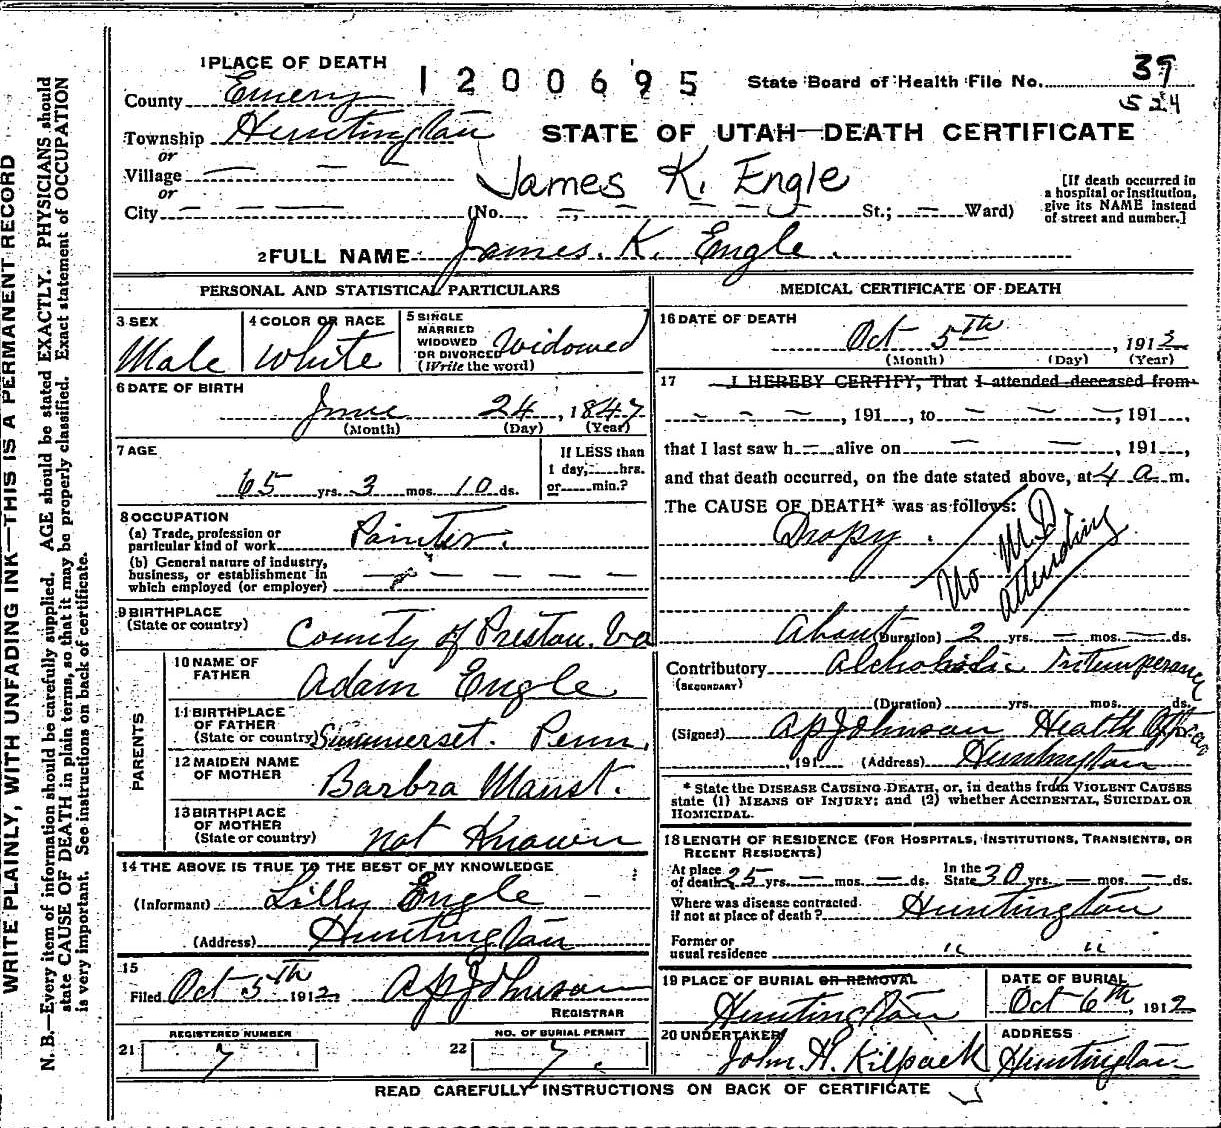 WRITE PLAINLY, WITH UNFADING INK—THIS IS A PERMANENT RECORD
N. B.—Every item of information should be carefully supplied. AGE should be stated EXACTLY. PHYSICIANS should
state CAUSE OF DEATH in plain terms, so that it may be properly classified. Exact statement of OCCUPATION
is very important. See instructions on back of certificate.
1 PLACE OF DEATH
1200695
State Board of Health File No. 39
524
County Emery
Township Huntington
STATE OF UTAH—DEATH CERTIFICATE
or
Village
James K. Engle
or
City (No. St.; Ward)
[If death occurred in
a hospital or institution,
give its NAME instead
of street and number.]
2 FULL NAME James. K. Engle.
PERSONAL AND STATISTICAL PARTICULARS
3 SEX
Male
4 COLOR OR RACE
White
5 SINGLE
MARRIED
WIDOWED
OR DIVORCED
(Write the word)
Widowed
6 DATE OF BIRTH
June 24, 1847
(Month) (Day) (Year)
7 AGE
65 yrs. 3 mos. 10 ds.
If LESS than
1 day, hrs.
or min.?
8 OCCUPATION
(a) Trade, profession or
particular kind of work Painter.
(b) General nature of industry,
business, or establishment in
which employed (or employer)
9 BIRTHPLACE
(State or country) County of Preston. Va
PARENTS
10 NAME OF
FATHER Adam Engle
11 BIRTHPLACE
OF FATHER
(State or country) Summerset. Penn.
12 MAIDEN NAME
OF MOTHER Barbra Maust.
13 BIRTHPLACE
OF MOTHER
(State or country) not Known
14 THE ABOVE IS TRUE TO THE BEST OF MY KNOWLEDGE
(Informant) Lilly Engle
(Address) Huntington
15
Filed Oct 5th 1912 A P Johnson
REGISTRAR
REGISTERED NUMBER
21 7
NO. OF BURIAL PERMIT
22 7.
MEDICAL CERTIFICATE OF DEATH
16 DATE OF DEATH
Oct 5th, 1912
(Month) (Day) (Year)
17 I HEREBY CERTIFY, That I attended deceased from
, 191 , to , 191 ,
that I last saw h alive on , 191 ,
and that death occurred, on the date stated above, at 4 a. m.
The CAUSE OF DEATH* was as follows:
Dropy.
No M.D
attending
About (Duration) 2 yrs. mos. ds.
Contributory Alcholholic Intemperance
(SECONDARY)
(Duration) yrs. mos. ds.
(Signed) A P Johnson Health
, 191 (Address) Huntington
* State the DISEASE CAUSING DEATH, or, in deaths from VIOLENT CAUSES
state (1) MEANS OF INJURY; and (2) whether ACCIDENTAL, SUICIDAL OR
HOMICIDAL.
18 LENGTH OF RESIDENCE (FOR HOSPITALS, INSTITUTIONS, TRANSIENTS, OR
RECENT RESIDENTS)
At place
of death 25 yrs. mos. ds.
In the
State 30 yrs. mos. ds.
Where was disease contracted
if not at place of death? Huntington
Former or
usual residence " "
19 PLACE OF BURIAL OR REMOVAL
Huntington
DATE OF BURIAL
Oct 6th, 1912
20 UNDERTAKER
John. H. Kilpack
ADDRESS
Huntington
READ CAREFULLY INSTRUCTIONS ON BACK OF CERTIFICATE